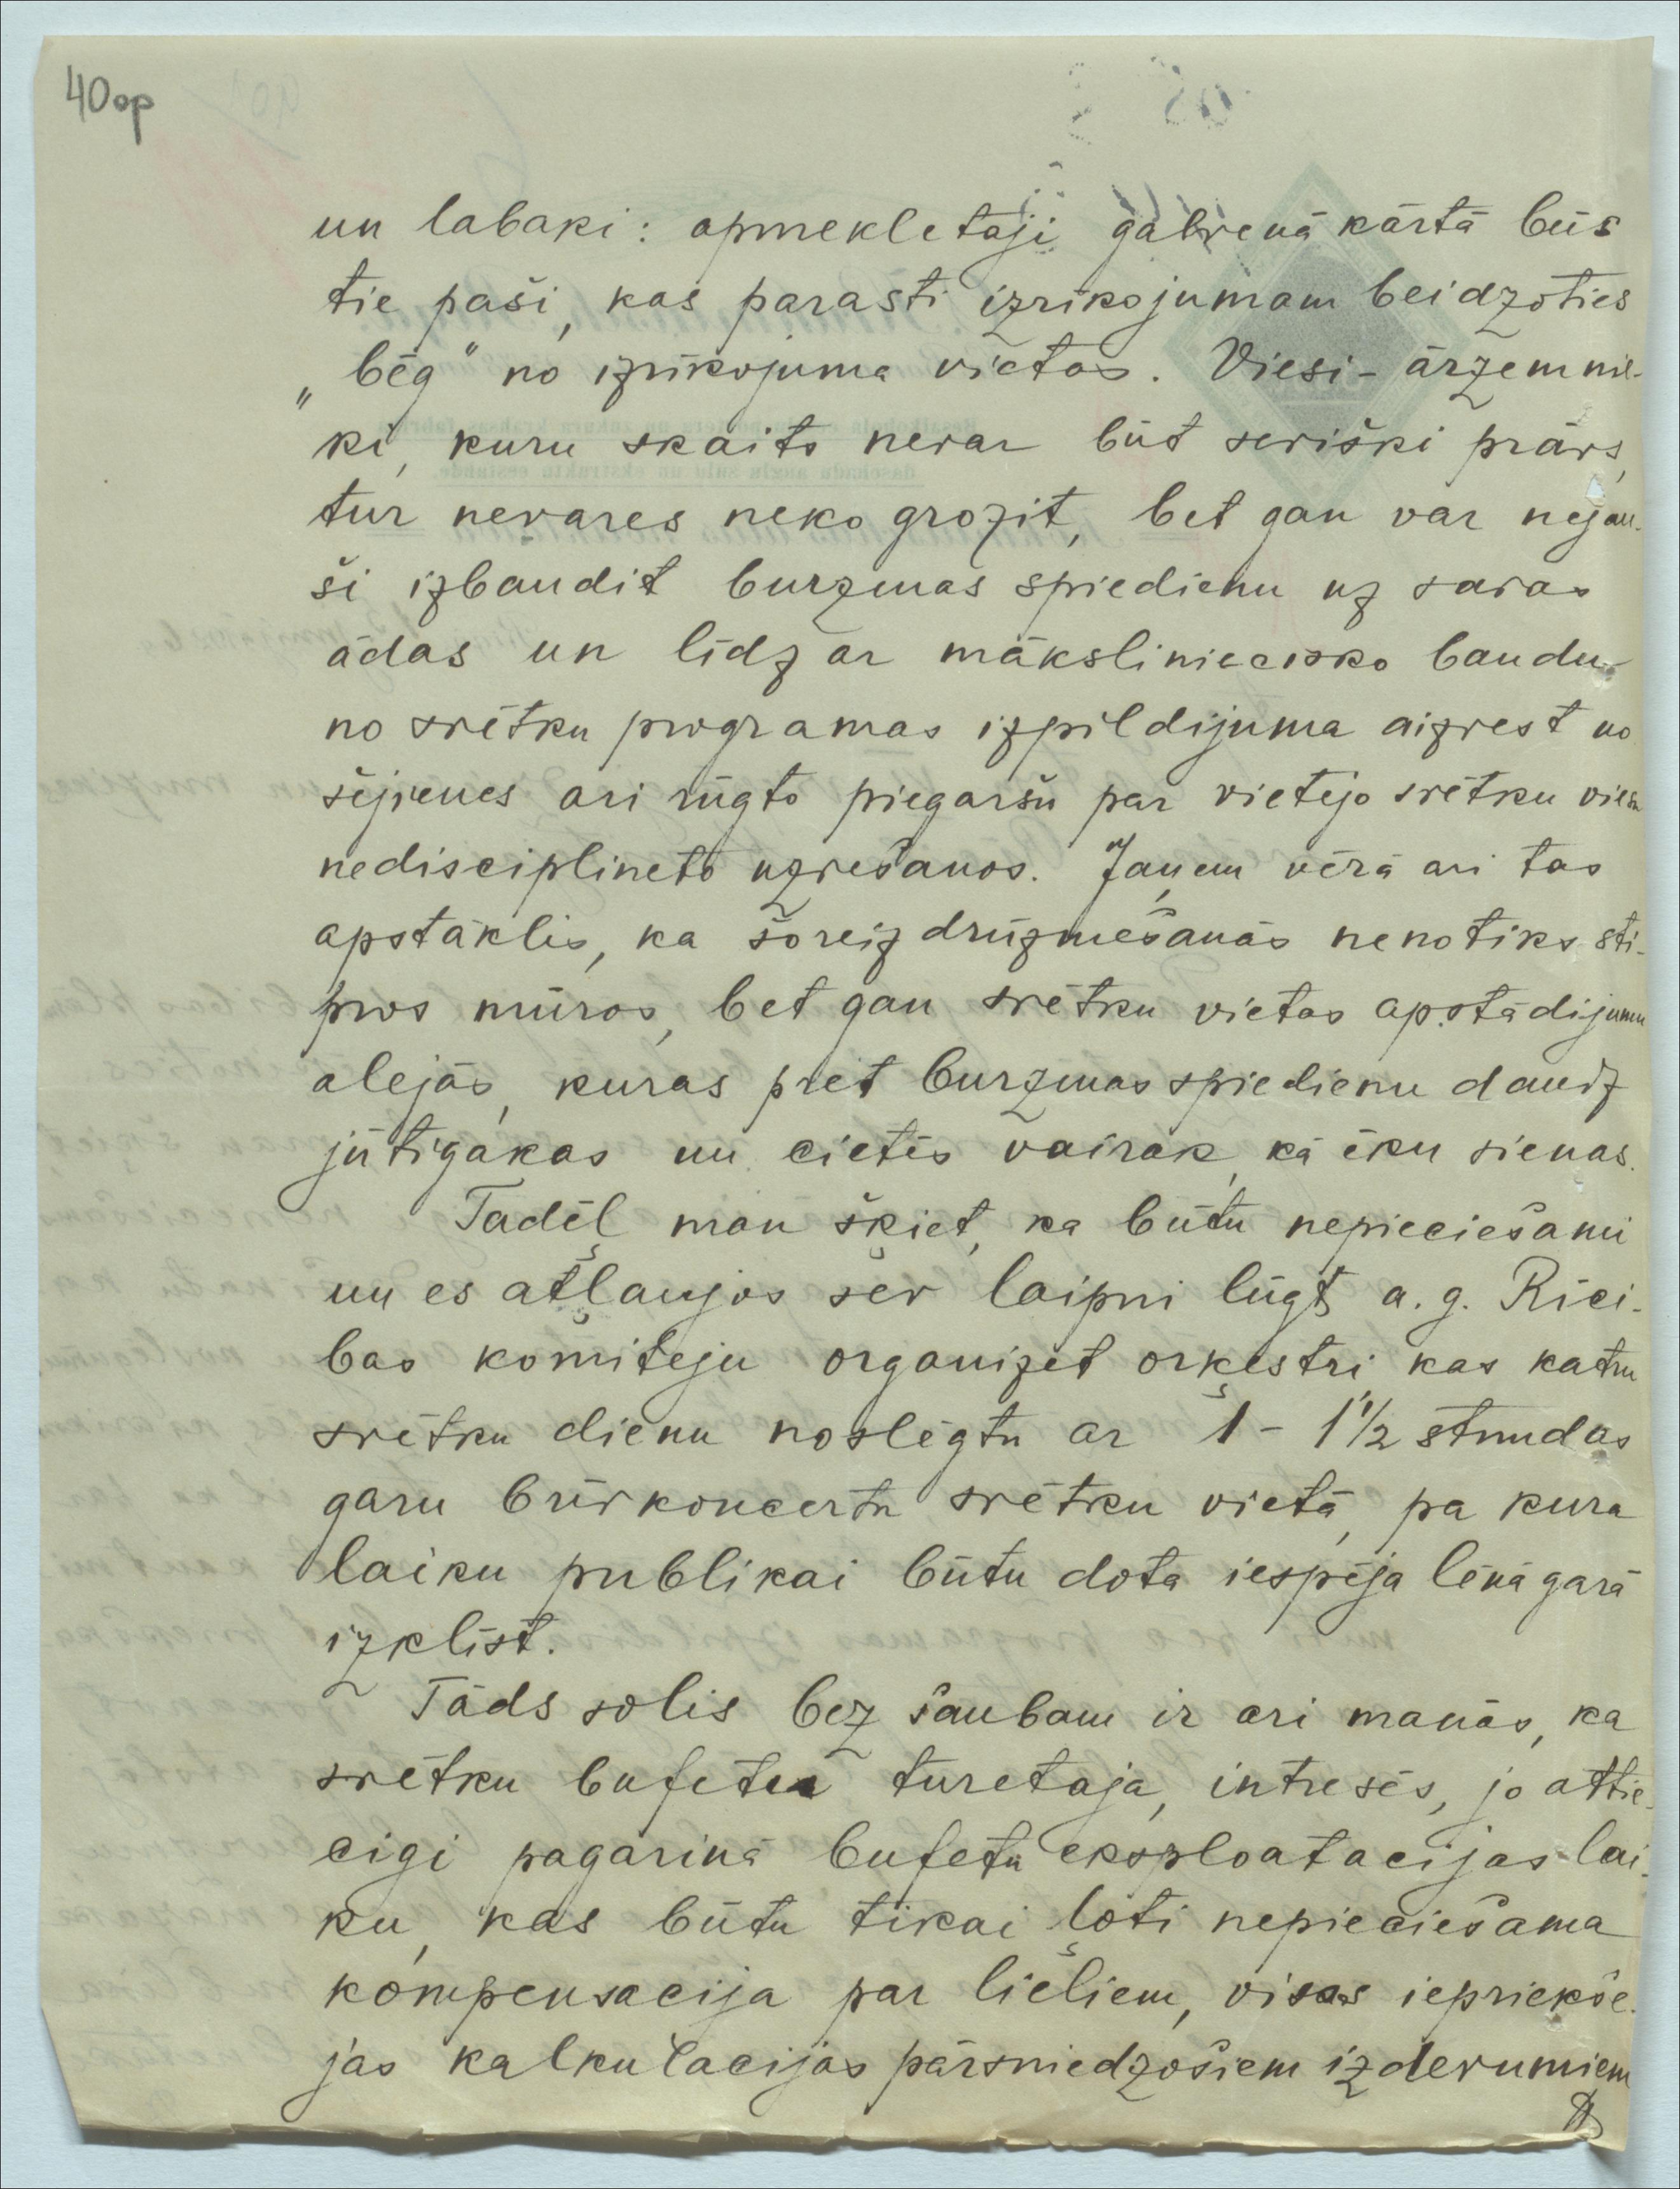 40 op
un labaki: apmekletaji galvenā kārtā būs
tie paši, kas parasti izrikojumam beidzoties
„bēg" no izrikojuma vietas. Viesi-ārzemnie-
ki, kuru skaits nevar būt seviški prāvs,
tur nevares neko grozit, bet gan var nejau-
ši izbaudit burzmas spiedienu uz savas
ādas un līdz ar māksliniecisko baudu
no svētku programas izpildijuma aizvest no
šejienes ari rūgto piegaršu par vietejo svētku viesu
nedisciplineto uzvešanos. Jaņem vērā ari tas
apstāklis, ka šoreiz drūzmešanās nenotiks sti-
pros mūros, bet gan svētku vietas apstādijumu
alejās, kuras pret burzmas spiedienu daudz
jūtigākas un cietīs vairāk, kā ēku sienas.
Tadēļ man šķiet, ka būtu nepieciešami
un es atļaujos šer laipni lūgt a. g. Rīci-
bas komiteju organizet orķestri kas katru
svētku dienu noslēgtu ar 1 - 1 1/2 stundas
garu brīvkoncertu svētku vietā, pa kura
laiku publikai būtu dota iespēja lēnā garā
izklīst.
Tāds solis bez šaubam ir ari manās, ka
svētku bufetu turetaja, intresēs, jo attie-
cigi pagarinā bufetu eksploatacijas lai-
ku, kas būtu tikai ļoti nepieciešama
kompensacija par lieliem, visas iepriekše-
jas kalkulacijas pārsniedzošiem izdevumiem